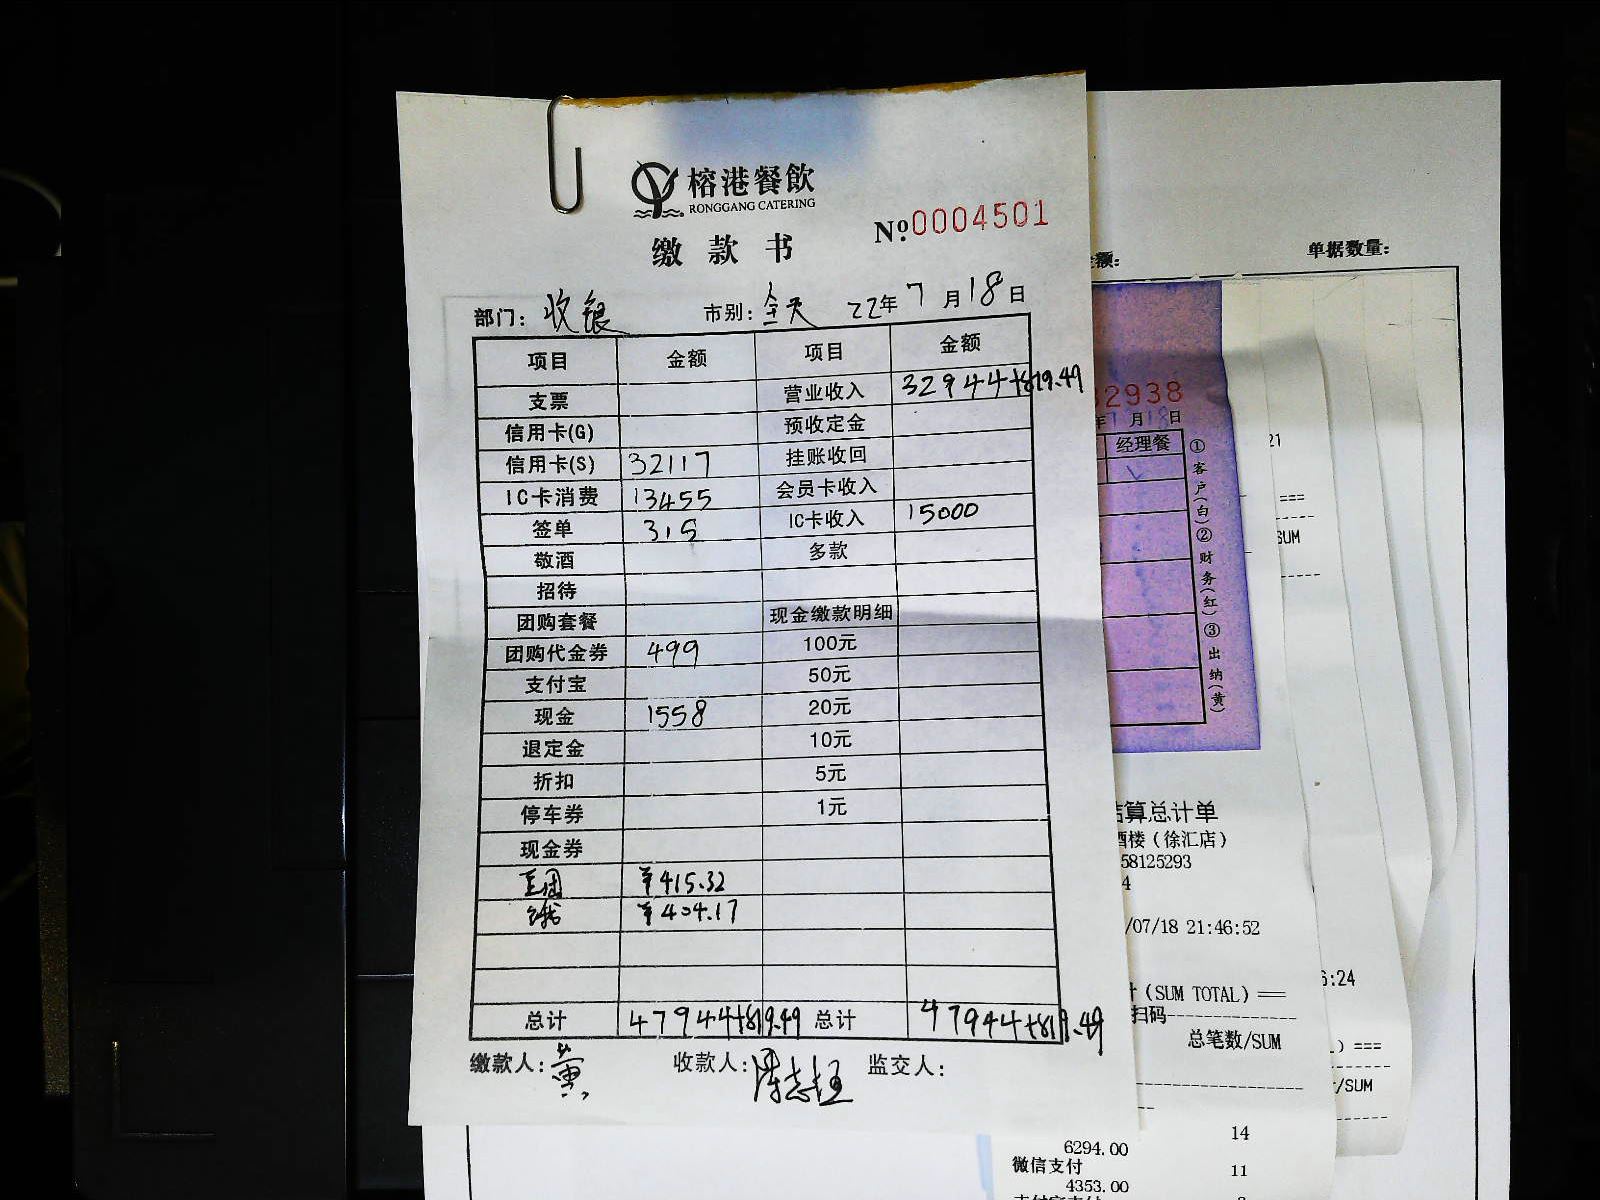 榕港餐飲
RONGGANG CATERING
缴款书
Nº.0004501
部门：收银 市别：全天 22年7月18日
项目 金额 项目 金额
支票 营业收入 32944+819.49
信用卡(G) 预收定金
信用卡(S) 32117 挂账收回
IC卡消费 13455 会员卡收入
签单 315 IC卡收入 15000
敬酒 多款
招待
团购套餐 现金缴款明细
团购代金券 499 100元
支付宝 50元
现金 1558 20元
退定金 10元
折扣 5元
停车券 1元
现金券
美团 ¥415.32
¥404.17
总计 47944+819.49 总计 47944+819.49
缴款人：黄 收款人： 监交人：
额： 单据数量：
2938
年 月18日
经理餐
①客户(白)②财务(红)③出纳(黄)
21
===
SUM
算总计单
酒楼（徐汇店）
58125293
4
/07/18 21:46:52
6:24
(SUM TOTAL) ===
扫码
总笔数/SUM
) ===
/SUM
14
6294.00
微信支付 11
4353.00